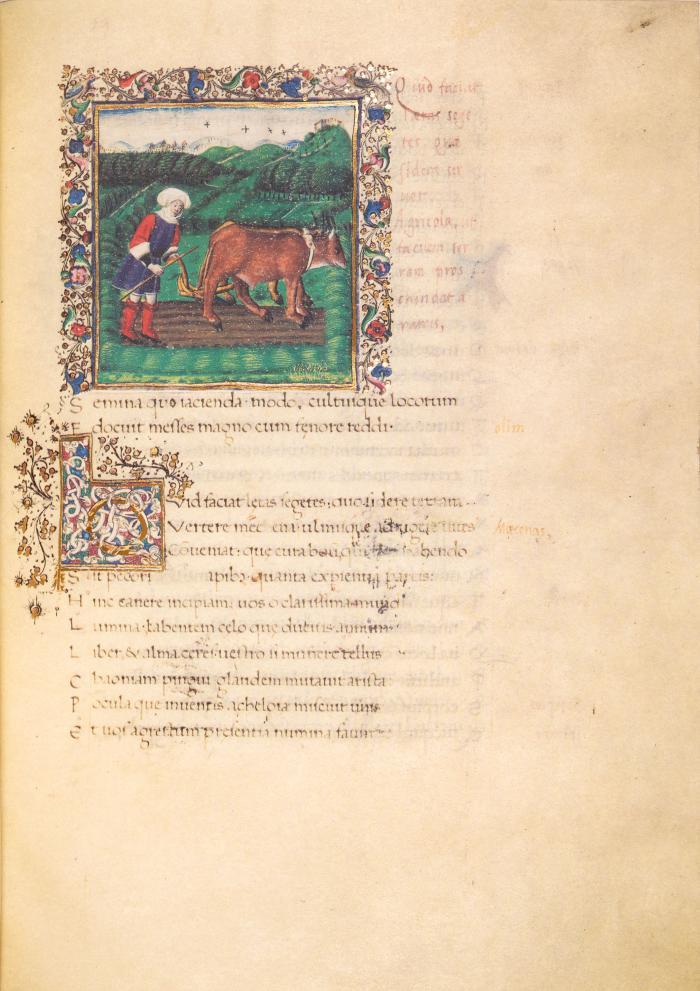 Quid faciat
lætas sege
tes, quæ
sidera ser
uet
Agricola, ut
facilem ter
ram pros
cindat a
ruis,
Semina quo iacienda modo, cultuique locorum
E docuit messes magno cum fenore reddi.
olim
Qvid faciat letas segetes: quo sidere terram
Vertere mec ena ulmisque adiungere uites
Mæcenas,
Coueniat: que cura boũ, habendo
Sit pecori apibꝰ quanta expientia parcis:
Hinc canere incipiam. uos o clarissima mundi
Lumina. labentem celo que ducitis annum
Liber, & alma ceres: uestro si munere tellus
Chaoniam pingui glandem mutauit arista
Poculaque inuentis acheloia miscuit uuis
Et uos agrestum presentia numina fauni